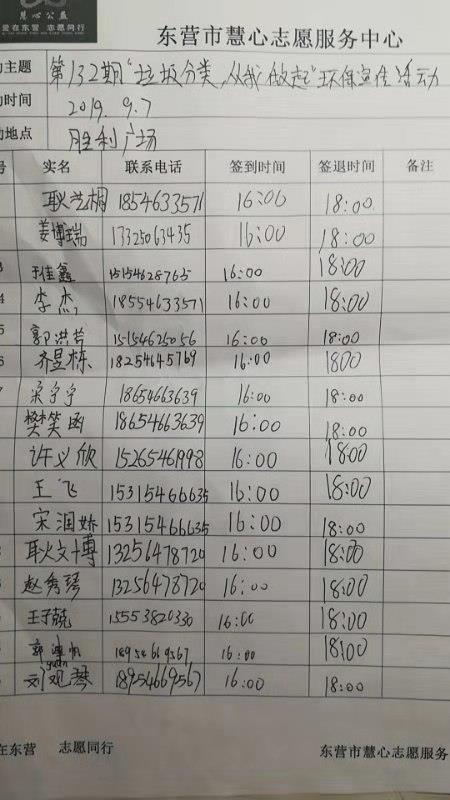 慧心公益
爱在东营 志愿同行
东营市慧心志愿服务中心
主题 第132期"垃圾分类,从我做起"环保宣传活动
时间 2019.9.7
地点 胜利广场
号 实名 联系电话 签到时间 签退时间 备注
耿 桐 18546633571 16:06 18:00
姜博瑞 17325063435 16:00 18:00
3 佳鑫 15154628765 16:00 18:00
4 李杰 18554633571 16:00 18:00
5 郭洪 15154625056 16:00 18:00
6 齐昱栋 18254645769 16:00 1800
7 宋宁宁 18654663639 16:00 18:00
樊笑函 18654663639 16:00 18:00
许义欣 15265461998 16:00 18:00
王飞 15315466635 16:00 18:00
宋润娇 15315466635 16:00 18:00
耿文博 13256478720 16:00 18:00
赵秀琴 13256478720 16:00 18:00
王子兢 15553820330 16:00 18:00
郭 帆 18954669567 16:00 18:00
刘观琴 18954669567 16:00 18:00
在东营 志愿同行 东营市慧心志愿服务